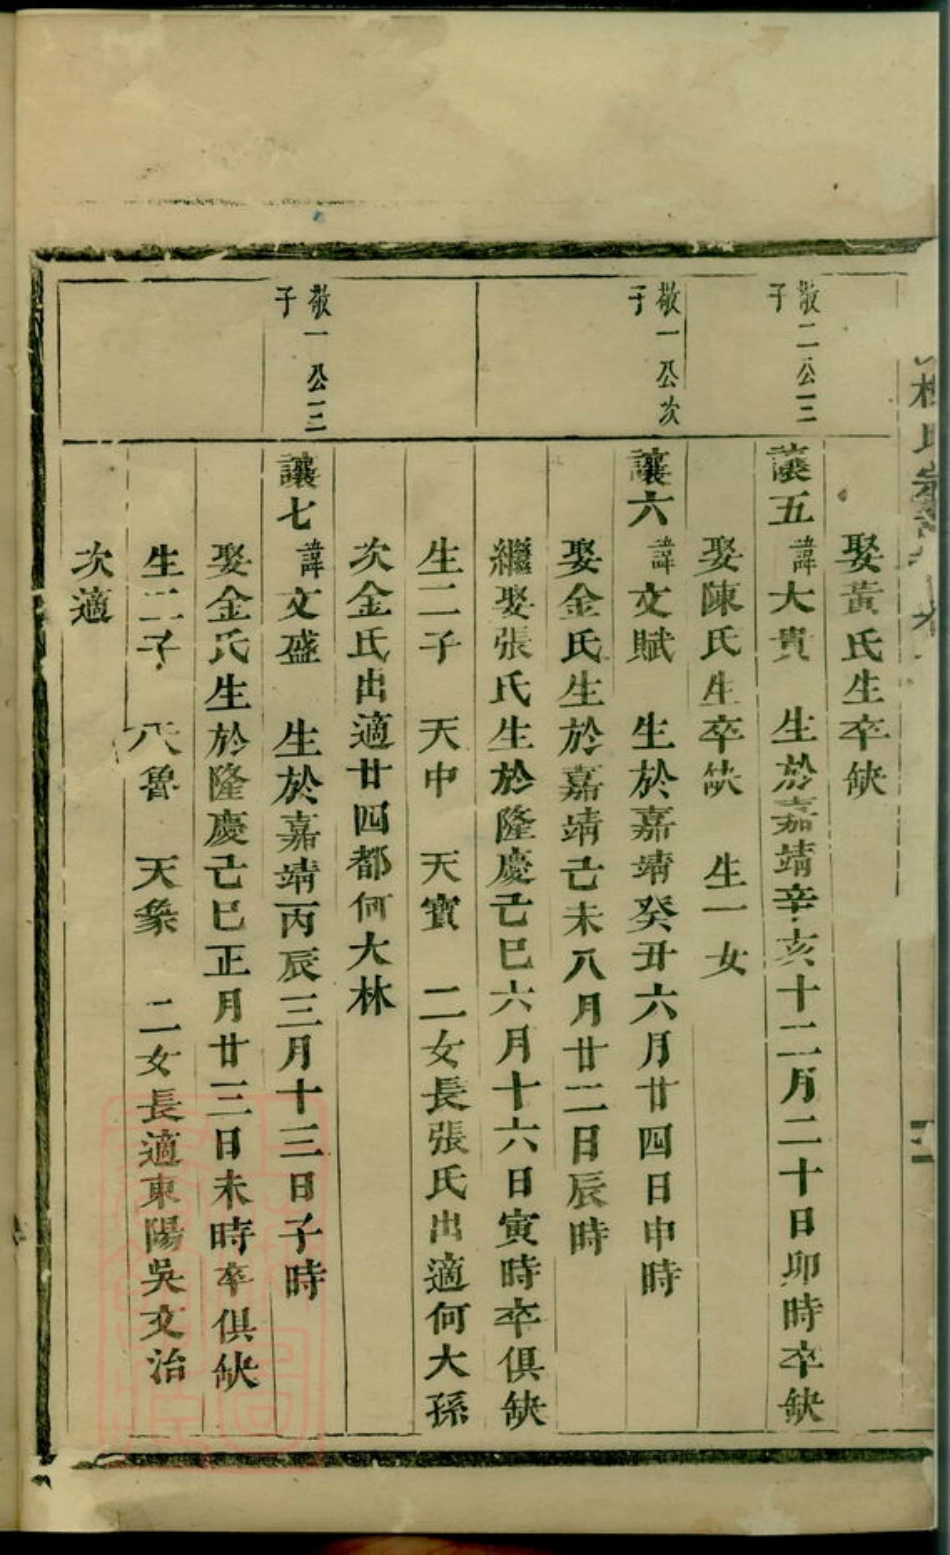 娶黃氏生卒缺
敬二公三
子
讓五 諱大貴 生於嘉靖辛亥十二月二十日卯時卒缺
娶陳氏生卒缺 生一女
敬一公次
子
讓六 諱文賦 生於嘉靖癸丑六月廿四日申時
娶金氏生於嘉靖己未八月廿二日辰時
繼娶張氏生於隆慶己巳六月十六日寅時卒俱缺
生二子 天中 天寶 二女長張氏出適何大孫
次金氏出適廿四都何大林
敬一公三
子
讓七 諱文盛 生於嘉靖丙辰三月十三日子時
娶金氏生於隆慶己巳正月廿三日未時卒俱缺
生二子 天魯 天象 二女長適東陽吳文治
次適